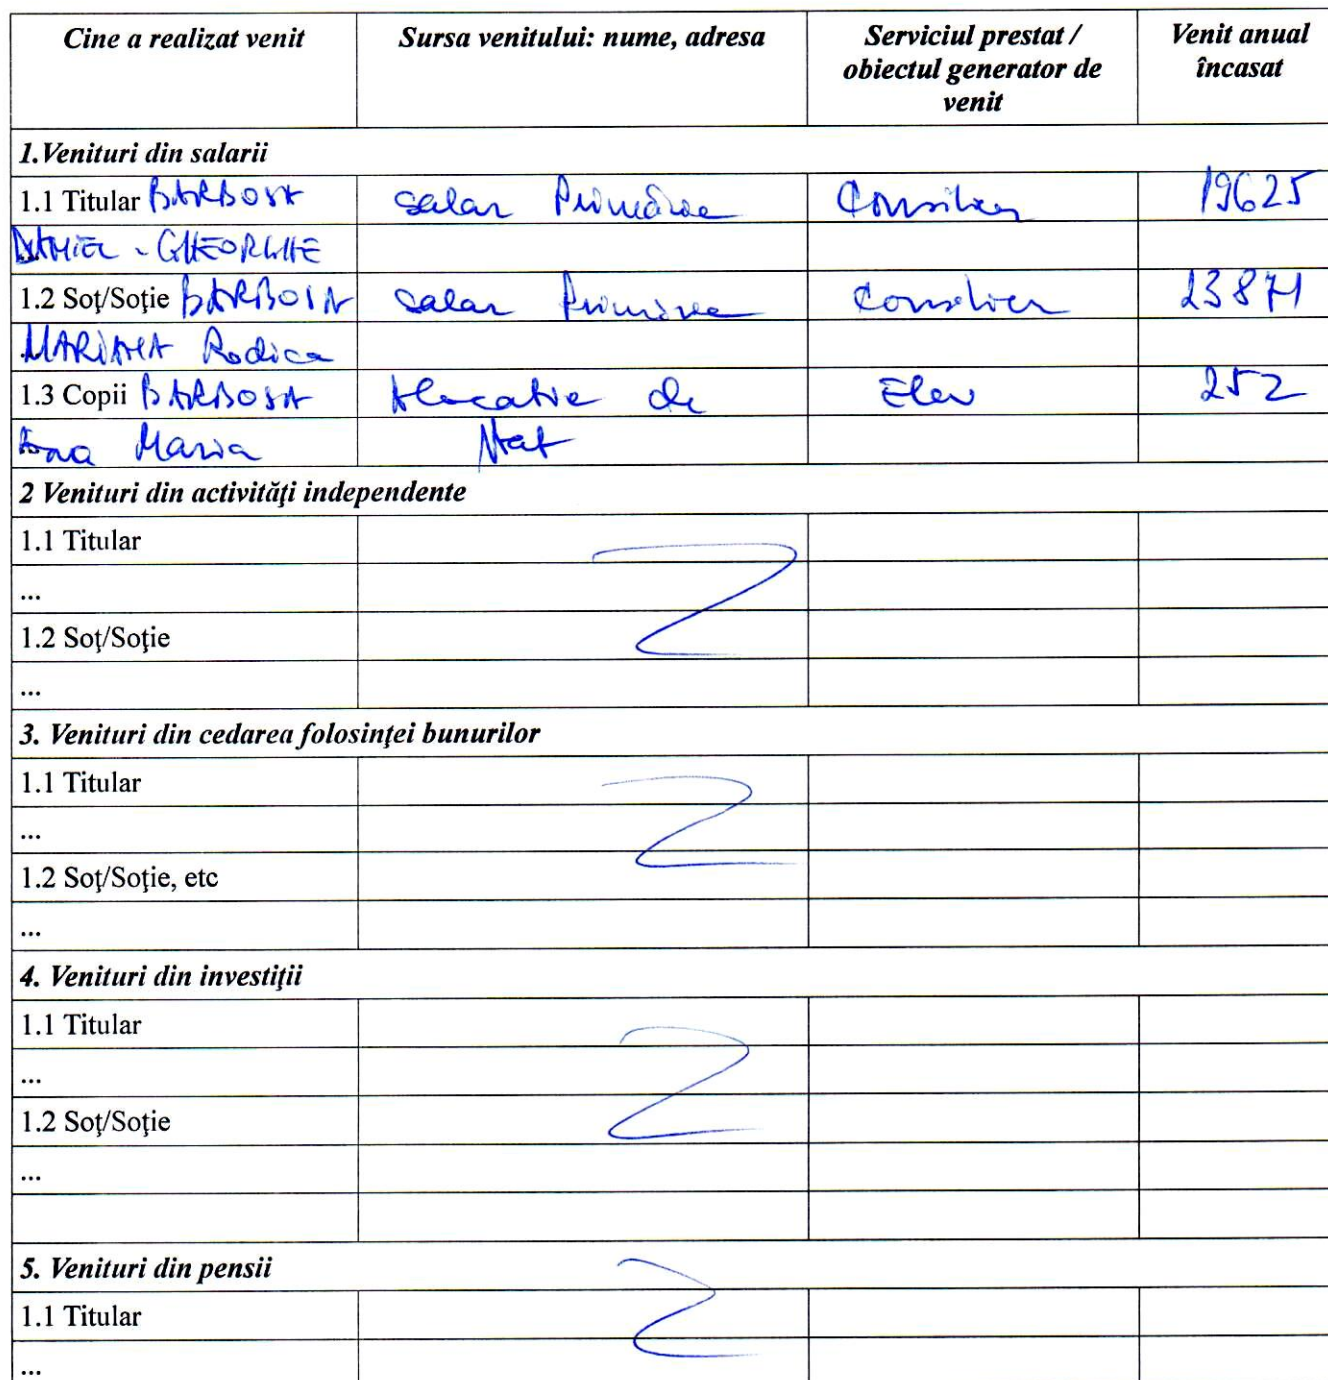 Cine a realizat venit Sursa venitului: nume, adresa Serviciul prestat / obiectul generator de venit Venit anual încasat
1.Venituri din salarii
1.1 Titular BARBOSA salar Primărie Consilier 19625
DANIEL - GHEORGHE
1.2 Soţ/Soţie BARBOSA salar Primărie Consilier 23871
MARIANA Rodica
1.3 Copii BARBOSA Alocatie de Elev 252
Ana Maria Stat
2 Venituri din activităţi independente
1.1 Titular
...
1.2 Soţ/Soţie
...
3. Venituri din cedarea folosinţei bunurilor
1.1 Titular
...
1.2 Soţ/Soţie, etc
...
4. Venituri din investiţii
1.1 Titular
...
1.2 Soţ/Soţie
...
5. Venituri din pensii
1.1 Titular
...